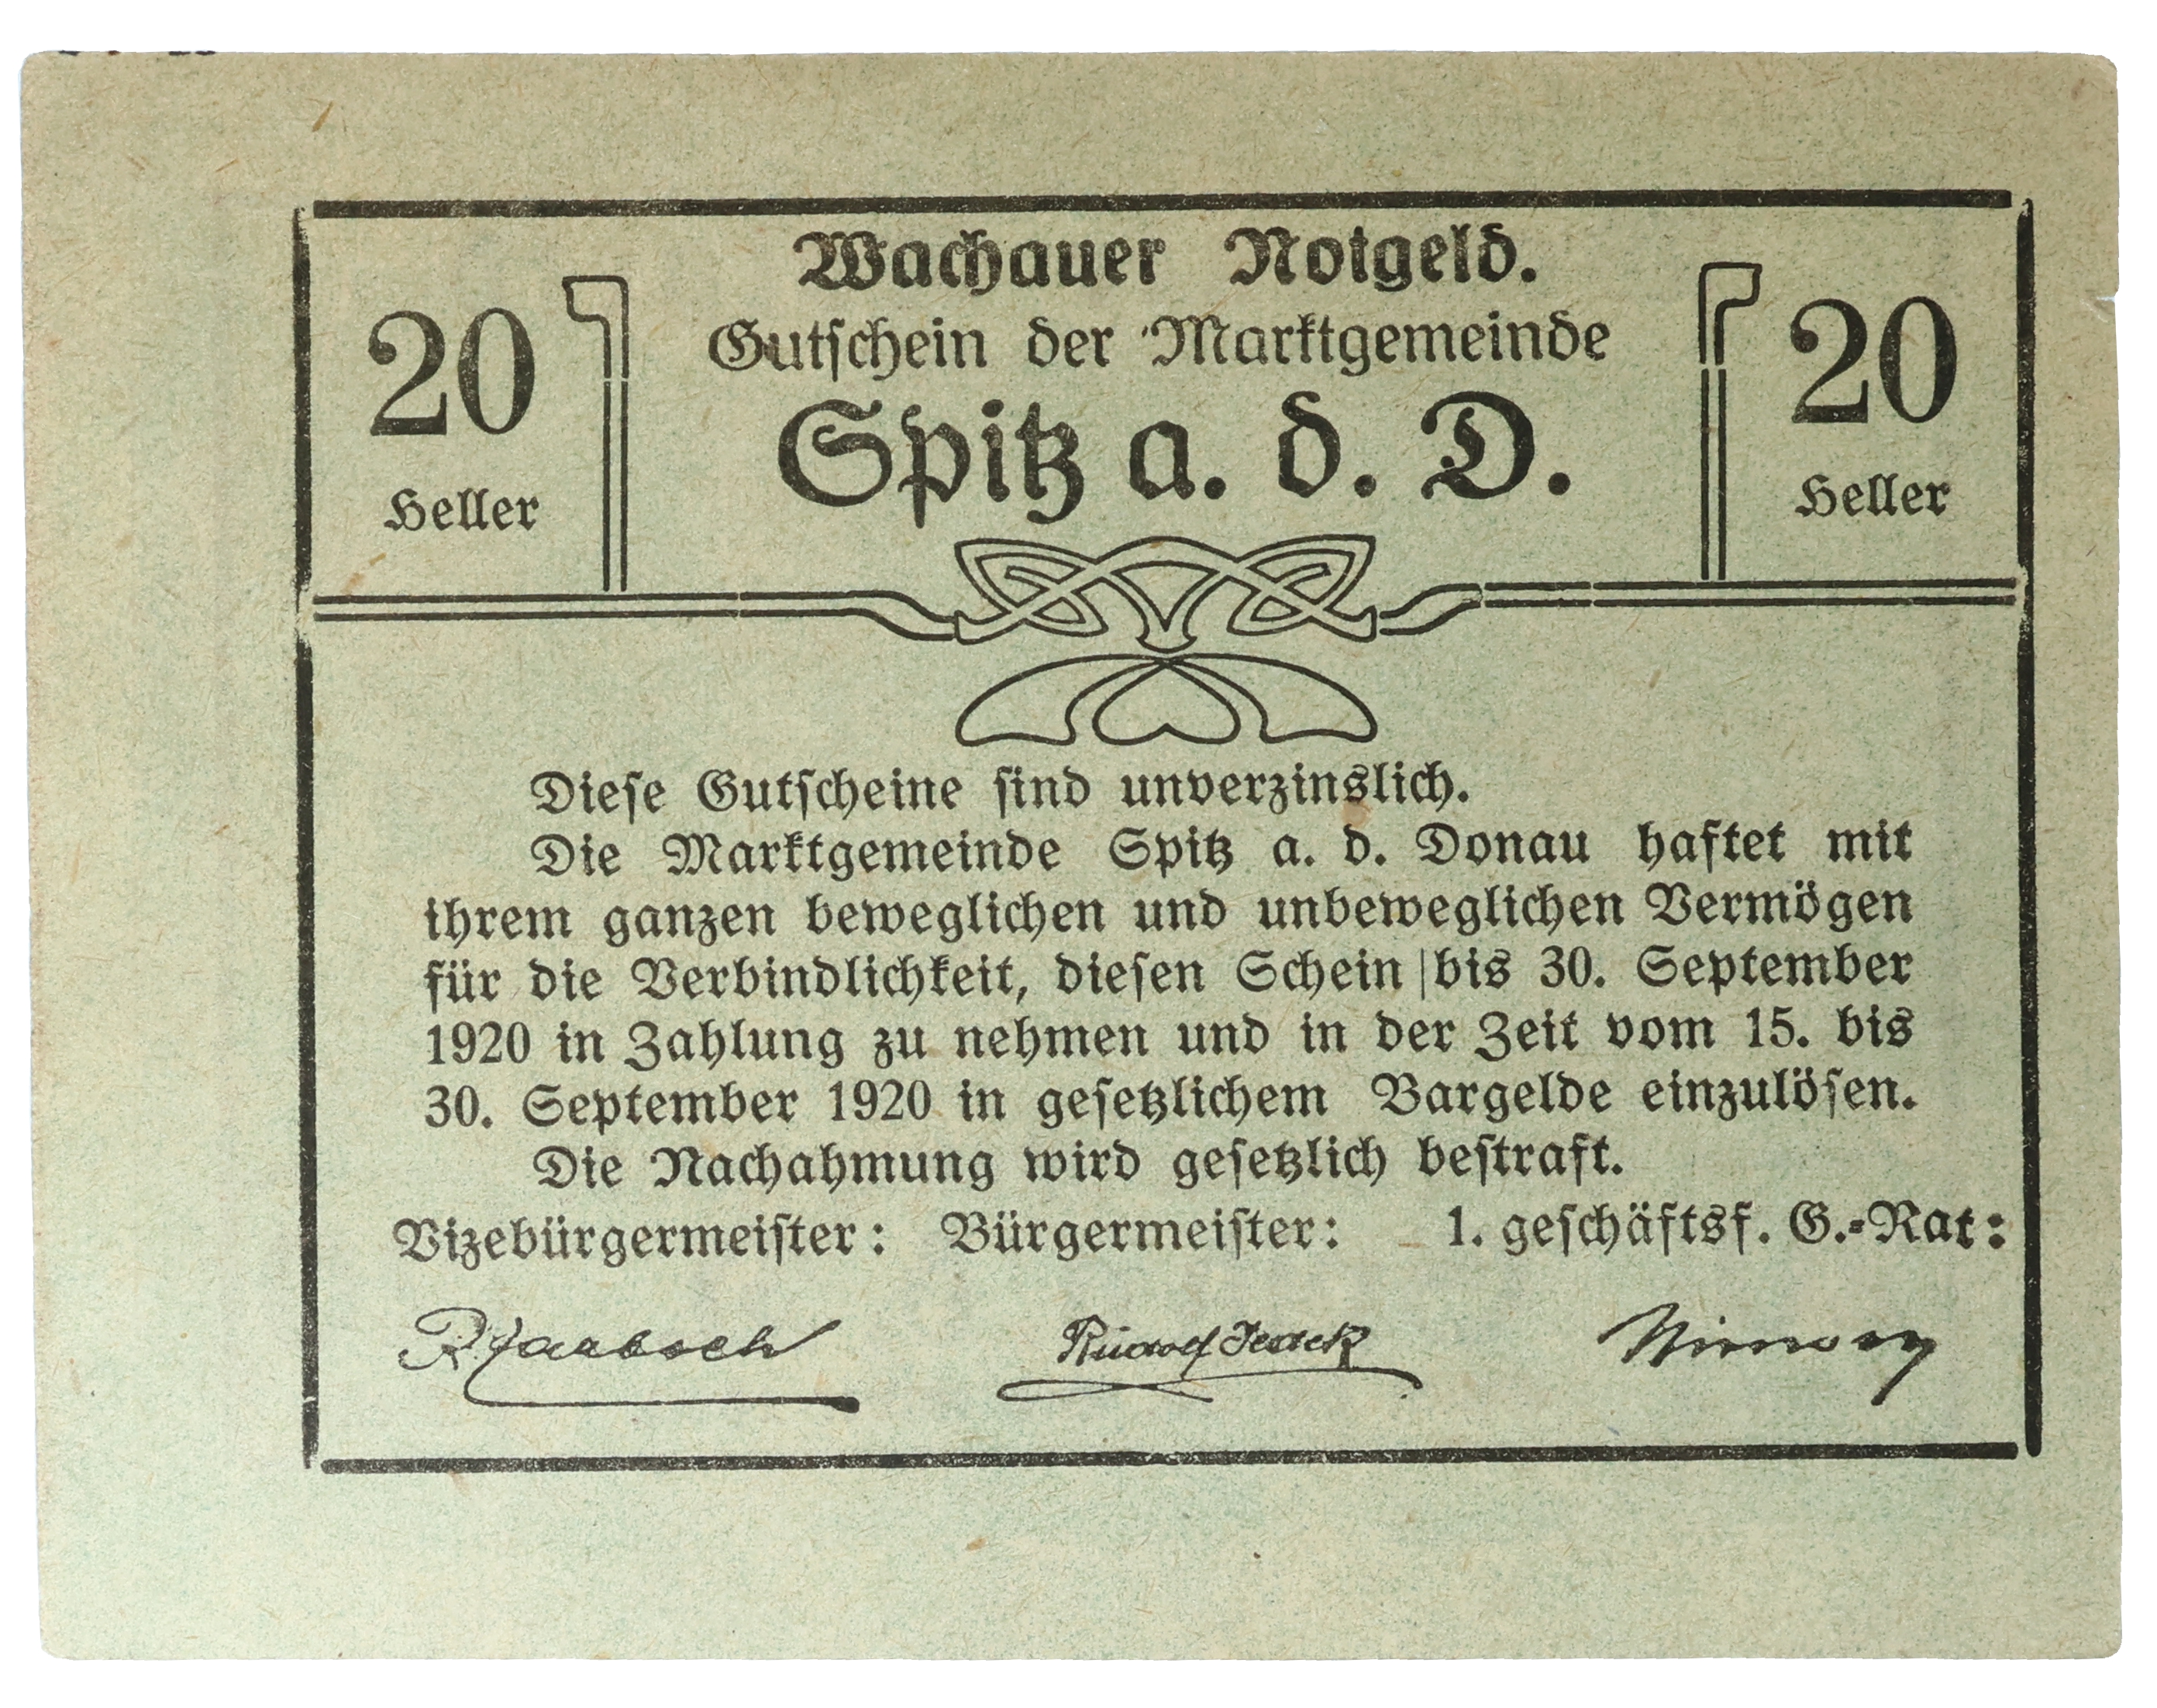 Wachauer Notgeld.
Gutschein der Marktgemeinde
Spitz a. d. D.
20
Heller
20
Heller
Diese Gutscheine sind unverzinslich.
Die Marktgemeinde Spitz a. d. Donau haftet mit
ihrem ganzen beweglichen und unbeweglichen Vermögen
für die Verbindlichkeit, diesen Schein bis 30. September
1920 in Zahlung zu nehmen und in der Zeit vom 15. bis
30. September 1920 in gesetzlichem Bargelde einzulösen.
Die Nachahmung wird gesetzlich bestraft.
Vizebürgermeister: Bürgermeister: 1. geschäftsf. G.-Rat:
Rudolf